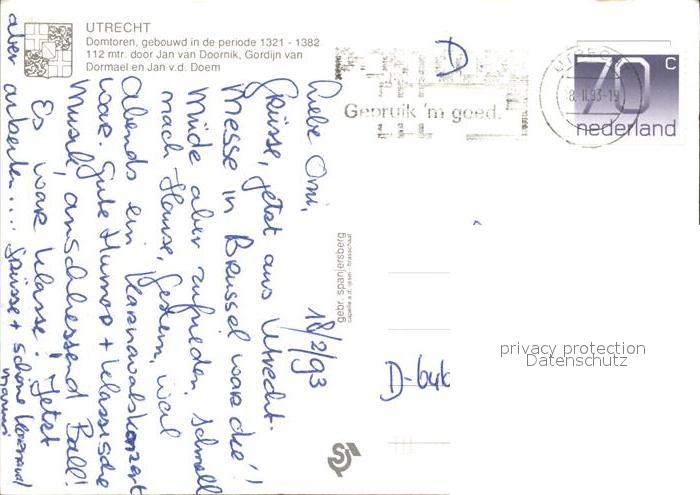 UTRECHT
Domtoren, gebouwd in de periode 1321 - 1382
112 mtr. door Jan van Doornik, Gordijn van
Dormael en Jan v.d. Doem
D
Gebruik 'm goed.
UTRECHT
18.II.93-19
70 C
nederland
18/2/93
Liebe Omi,
Grüsse, jetzt aus Utrecht.
Messe in Brüssel war oké!
Müde aber zufrieden schnell
nach Hause, gestern, weil
abends ein Karnevalskonzert
war. Gute Humor + klassische
Musik, anschliessend Ball!
Es war klasse! Jetzt
aber arbeiten... Grüsse + schöne Karneval
gebr. spanjersberg
capelle a.d. ijssel
D-646
privacy protection
Datenschutz